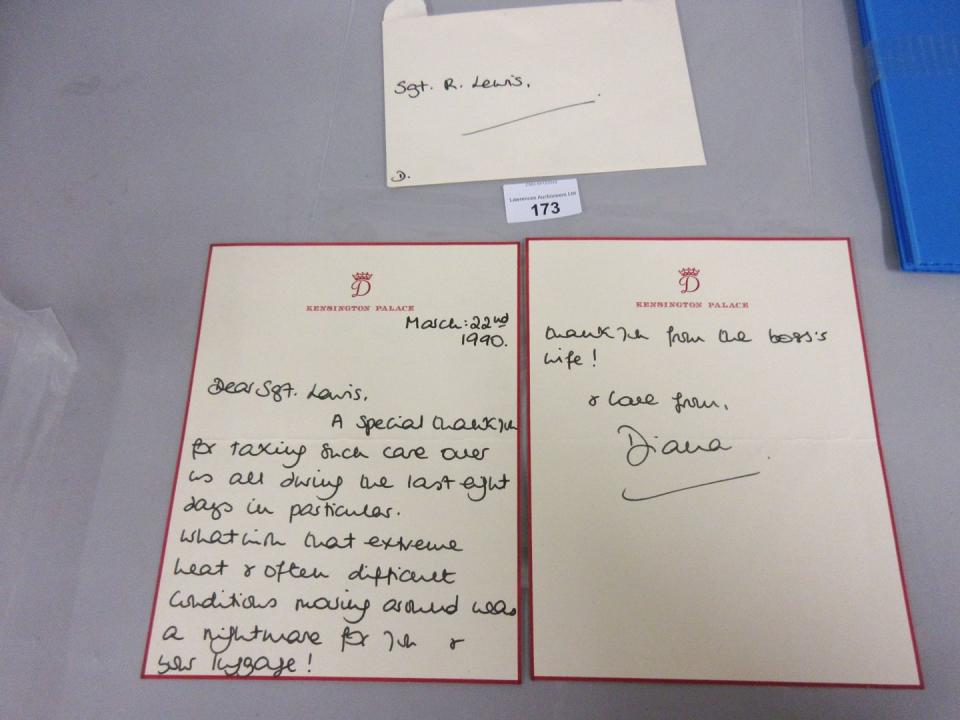 Sgt. R. Lewis.
D.
Lawrences Auctioneers Ltd
173
D
KENSINGTON PALACE
March: 22nd
1990.
Dear Sgt. Lewis,
A special thank you
for taking such care over
us all during the last eight
days in particular.
What with that extreme
heat & often difficult
conditions moving around was
a nightmare for you &
your luggage!
D
KENSINGTON PALACE
thank you from the boss's
wife!
& love from,
Diana